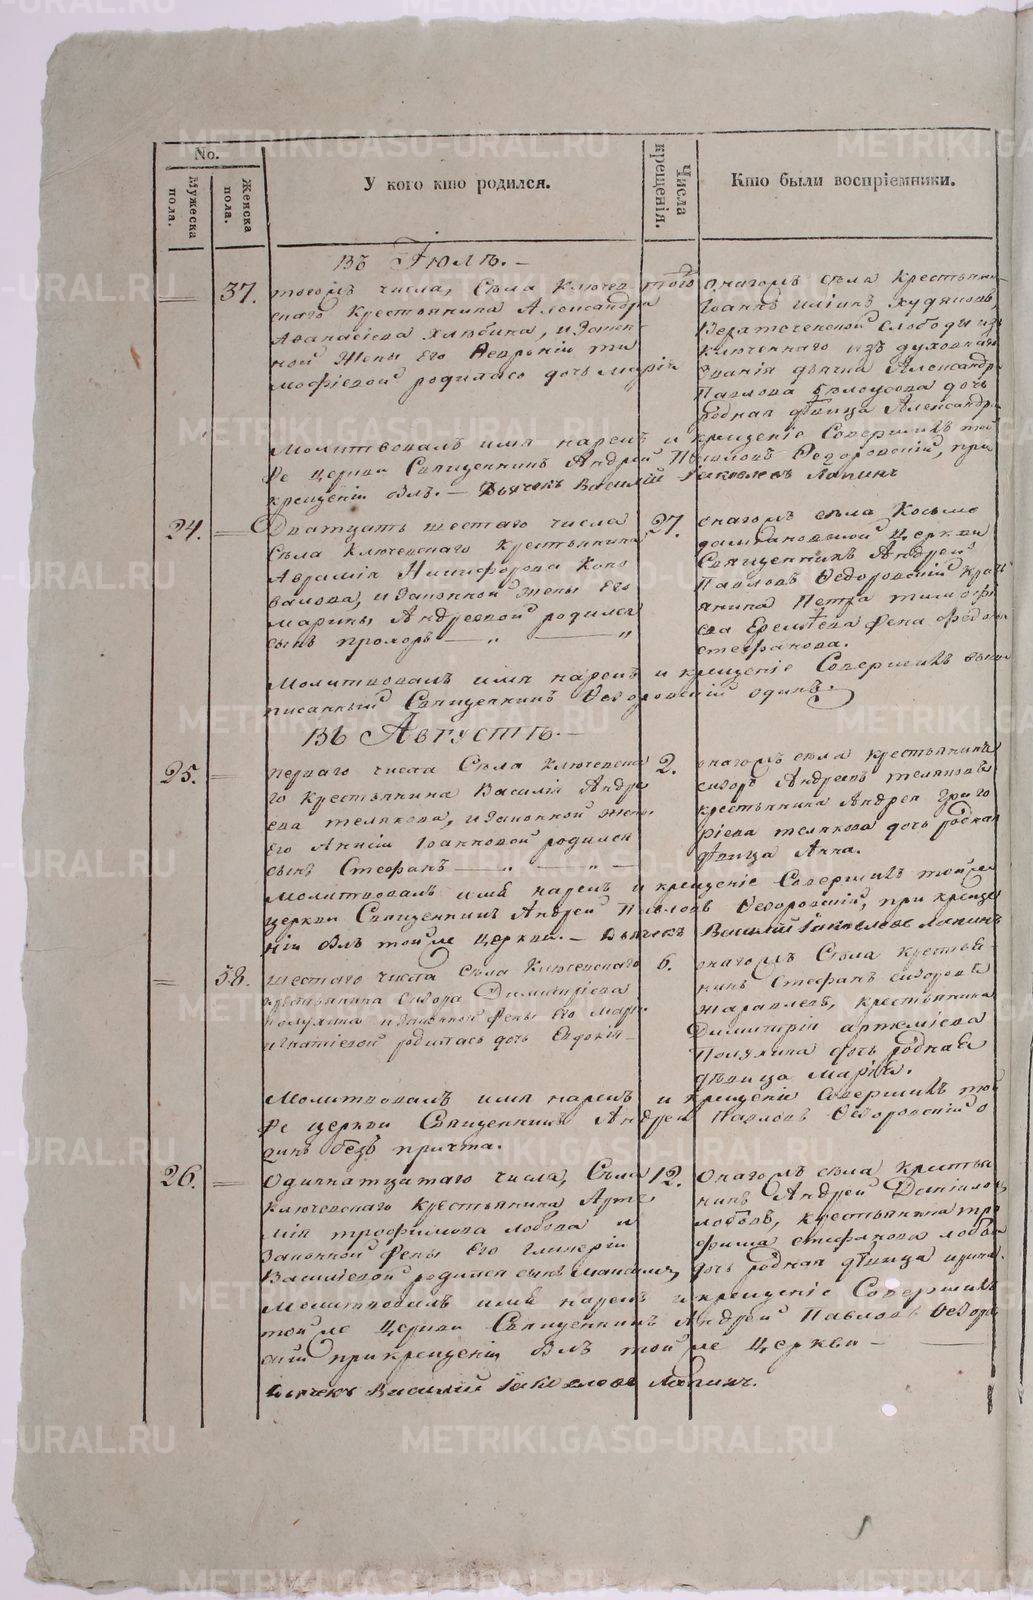 No.
Мужеска пола.
Женска пола.
У кого кто родился.
Числа крещенія.
Кто были воспріемники.
Въ Іюлѣ.
37.
тогожъ числа, Села Ключев
скаго крестьянина Александра
Аѳанасіева Хлыбина, и закон
ной жены его Ѳевроніи ти
моѳіевой родилась дочь Марія
того
онагожъ села крестьянин
Іоаннъ Иліинъ Худяковъ,
Верхтеченской слободы из
ключеннаго изъ духовнаго
званія дьячка Александра
Павлова Бѣлоусова дочь
родная дѣвица Александра
Молитвовалъ имя нарекъ и крещеніе Совершилъ той
же церкви Священникъ Андрей Павловъ Ѳедоровскій, при
крещеніи былъ. — Дьячекъ Василій Іаковлевъ Лапинъ
24.
Дватцать шестаго числа
Села Ключевскаго крестьянина
Аврамія Никифорова Коно
валова, и законной жены Его
Марины Андреевой родился
сынъ прохоръ
27.
онагожъ села Космо
даміановской Церкви
Священникъ Андрей
Павловъ Ѳедоровскій крест
янина Петра тимоѳѣ
ева жена
стефанова.
Молитвовалъ имя нарекъ и крещеніе Совершилъ выше
писанный Священникъ Ѳедоровскій одинъ.
Въ Августѣ.
25.
перваго числа Села Ключевска
го крестьянина Василія Андре
ева телякова, и законной жены
Его Анисіи Іоанновой родился
сынъ Стефанъ
2.
онагожъ села крестьянинъ
сидоръ Андреевъ теляковъ
крестьянина Андрея Григо
ріева телякова дочь родная
дѣвица Анна.
Молитвовалъ имя нарекъ и крещеніе Совершилъ тойже
церкви Священникъ Андрей Павловъ Ѳедоровскій, при креще
ніи былъ тойже Церкви. — Дьячекъ Василій Іаковлевъ Лапинъ
38.
шестаго числа Села Ключевскаго
крестьянина сидора Димитріева
и законной жены Его Маріи
Игнатіевой родилась дочь Евдокія
6.
онагожъ Села крестья
нинъ Стефанъ сидоровъ
жаравлевъ, крестьянина
Димитрія артеміева
дочь родная
дѣвица Марія.
Молитвовалъ имя нарекъ и крещеніе Совершилъ той
же церкви Священникъ Андрей Павловъ Ѳедоровскій о
динъ безъ причта.
26.
Одиннатцатаго числа, Села
Ключевскаго крестьянина Арте
мія трофимова лобова и
законной жены Его Гликеріи
Василіевой родился сынъ Максимъ,
12.
Онагожъ села крестья
нинъ Андрей Даніиловъ
лобовъ, крестьянина тро
фима стефанова лобова
дочь родная дѣвица ирина.
Молитвовалъ имя нарекъ и крещеніе Совершилъ
тойже Церкви Священникъ Андрей Павловъ Ѳедоров
скій при крещеніи былъ тойже Церкви —
Дьячекъ Василій Іаковлевъ Лапинъ.